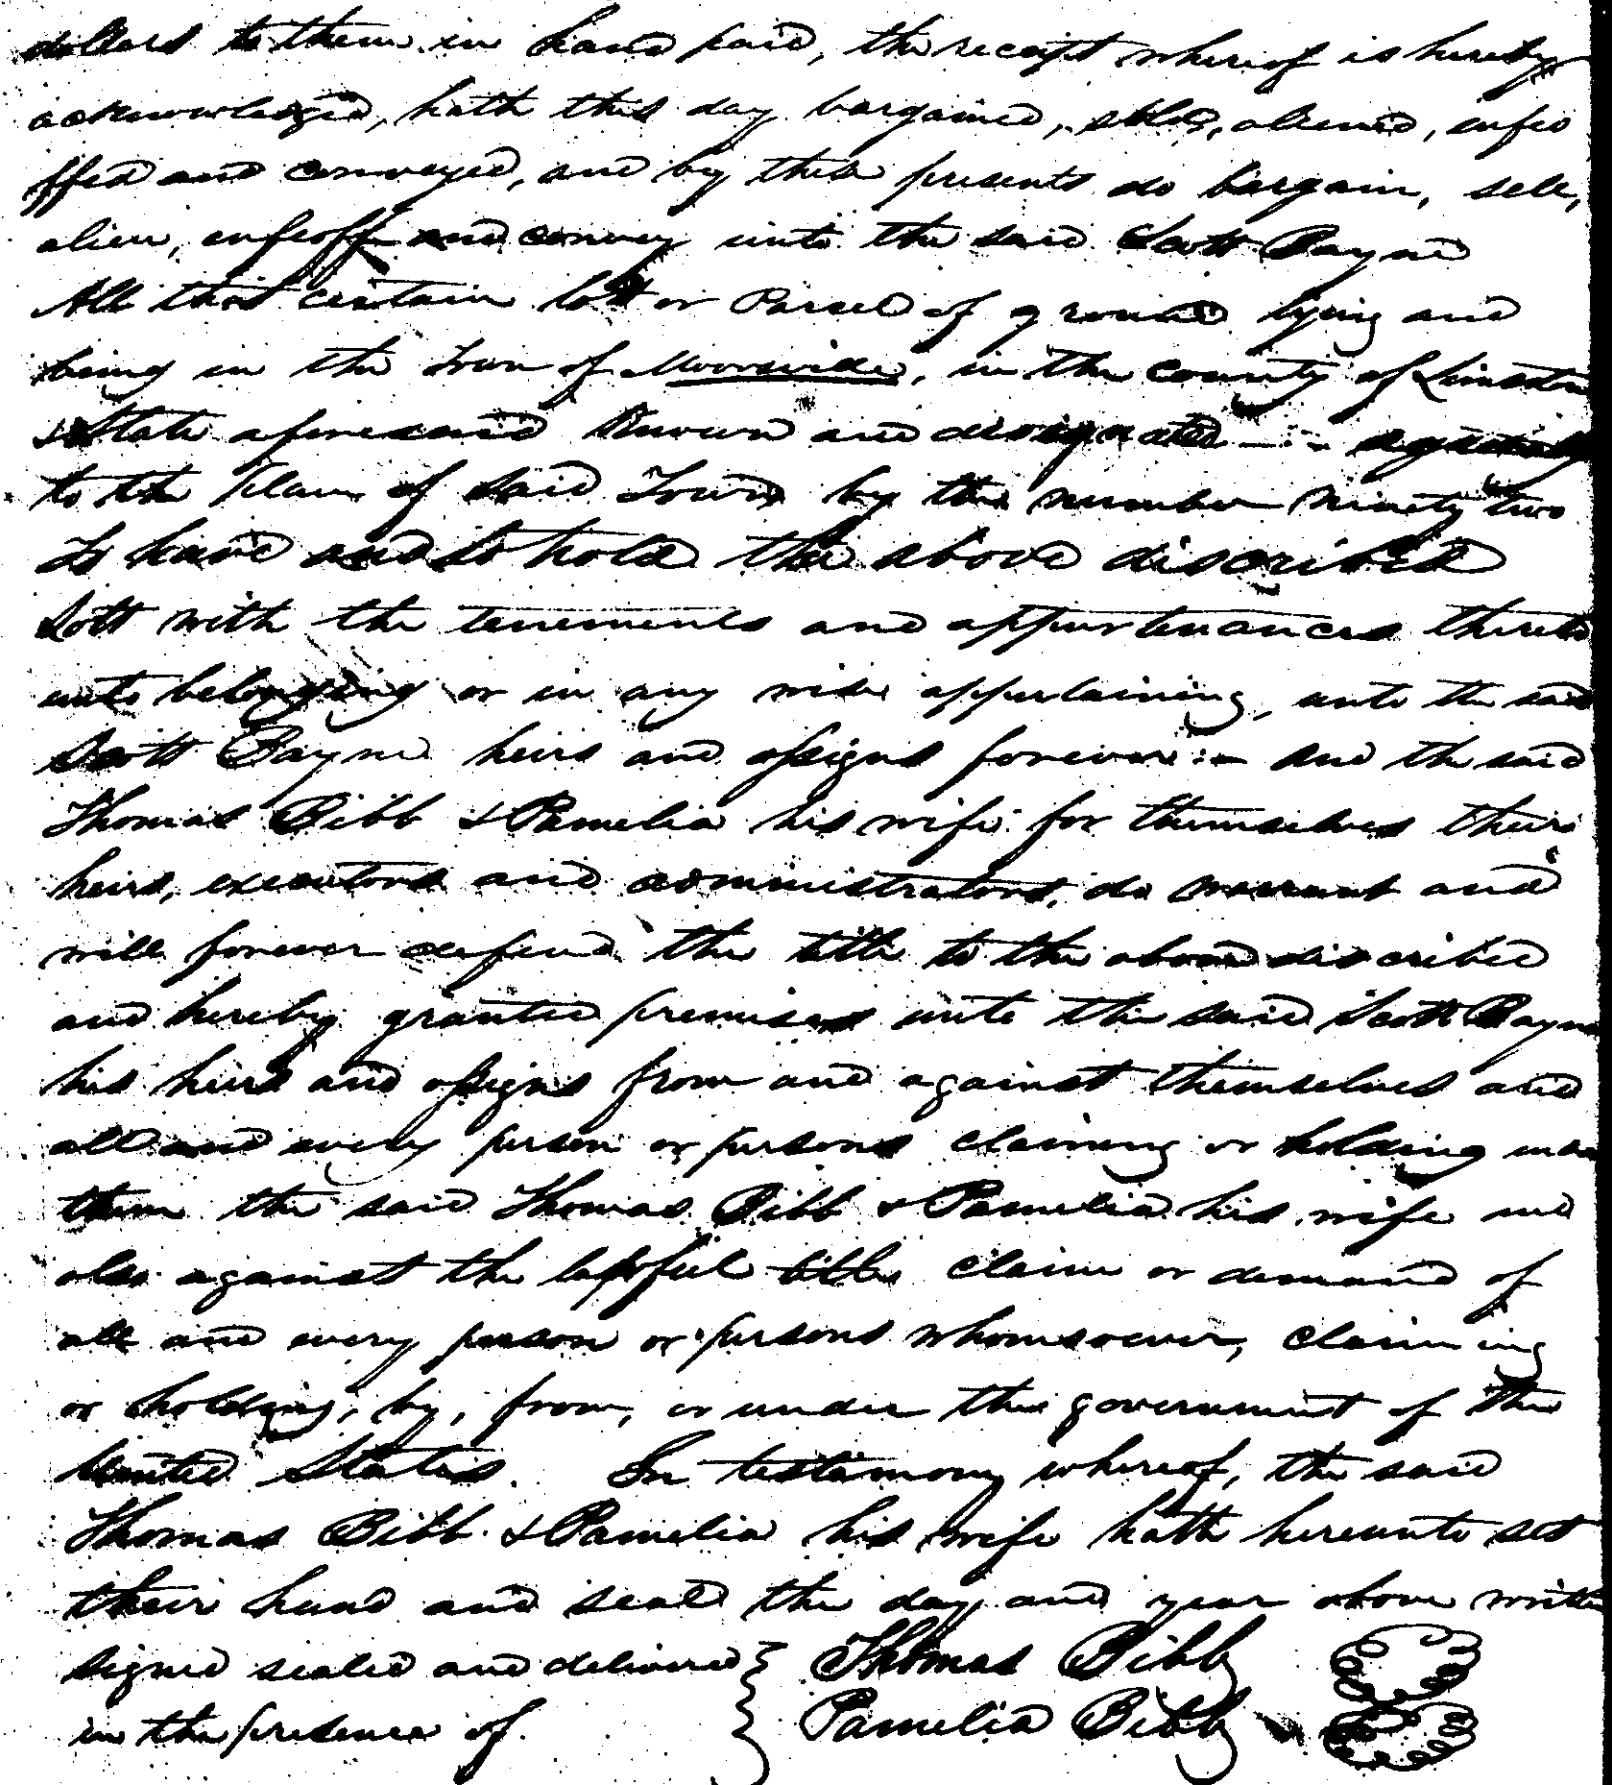 dollars to them in hand paid, the receipt whereof is hereby
acknowledged, hath this day bargained, sold, aliened, enfeo
ffed and conveyed, and by these presents do bargain, sell,
alien, enfeoff and convey unto the said Scott Payne
All that certain lott or Parsel of ground lying and
being in the Town of Mooresville, in the county of Limeston
& State aforesaid Known and designated
to the Plan of said Town by the number Ninety two
To have and to hold the above discribed
Lott with the tenements and appurtenances thereto
unto belonging or in any wise appertaining, unto the said
Scott Payne heirs and assigns forever :- And the said
Thomas Bibb & Pamelia his wife for themselves their
heirs, executors and administrators, do warrant and
will forever defend the title to the above discribed
and hereby granted premises unto the said Scott Payne
his heirs and assigns from and against themselves and
all and every person or persons claiming or holding unde
them the said Thomas Bibb & Pamelia his wife and
also against the lawful title claim or demand of
all and every person or persons whomsoever, claiming
or holding, by, from, or under the government of the
United States. In testimony whereof, the said
Thomas Bibb & Pamelia his wife hath hereunto set
their hand and seal the day and year above writte
signed sealed and delivered } Thomas Bibb
in the presence of. Pamelia Bibb